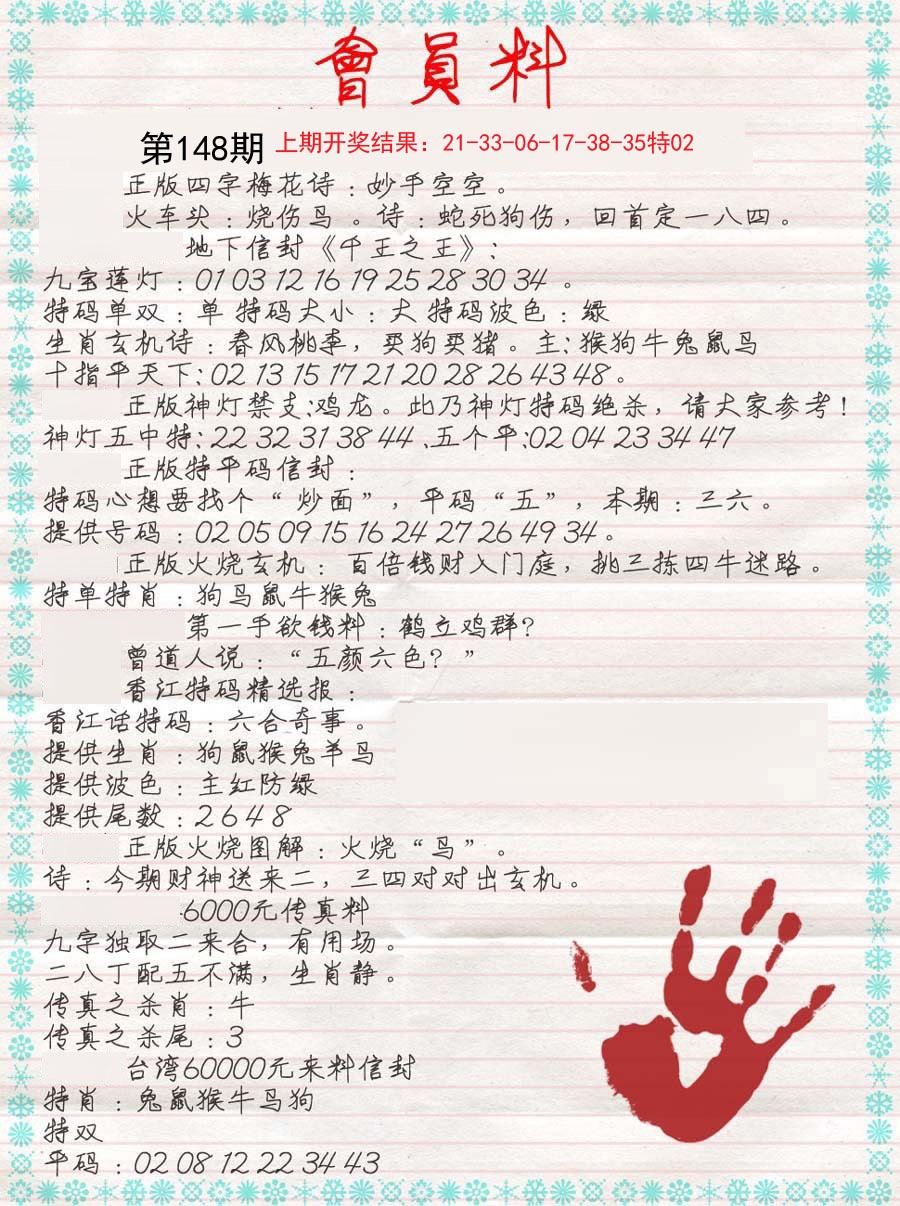 會員料
第148期 上期开奖结果：21-33-06-17-38-35特02
正版四字梅花诗：妙手空空。
火车头：烧伤鸟。诗：蛇死狗伤，回首定一八四。
地下信封《千王之王》：
九宝莲灯：01 03 12 16 19 25 28 30 34 。
特码单双：单 特码大小：大 特码波色：绿
生肖玄机诗：春风桃李，买狗买猪。主：猴狗牛兔鼠鸟
十指平天下：02 13 15 17 21 20 28 26 43 48。
正版神灯禁支：鸡龙。此乃神灯特码绝杀，请大家参考！
神灯五中特：22 32 31 38 44 、五个平：02 04 23 34 47
正版特平码信封：
特码心想要找个“炒面”，平码“五”，本期：三六。
提供号码：02 05 09 15 16 24 27 26 49 34。
正版火烧玄机：百倍钱财入门庭，挑三拣四牛迷路。
特单特肖：狗鸟鼠牛猴兔
第一手欲钱料：鹤立鸡群？
曾道人说：“五颜六色？”
香江特码精选报：
香江话特码：六合奇事。
提供生肖：狗鼠猴兔羊鸟
提供波色：主红防绿
提供尾数：2 6 4 8
正版火烧图解：火烧“鸟”。
诗：今期财神送来二，三四对对出玄机。
6000元传真料
九字独取二来合，有用场。
二八丁配五不满，生肖静。
传真之杀肖：牛
传真之杀尾：3
台湾60000元来料信封
特肖：兔鼠猴牛鸟狗
特双
平码：02 08 12 22 34 43